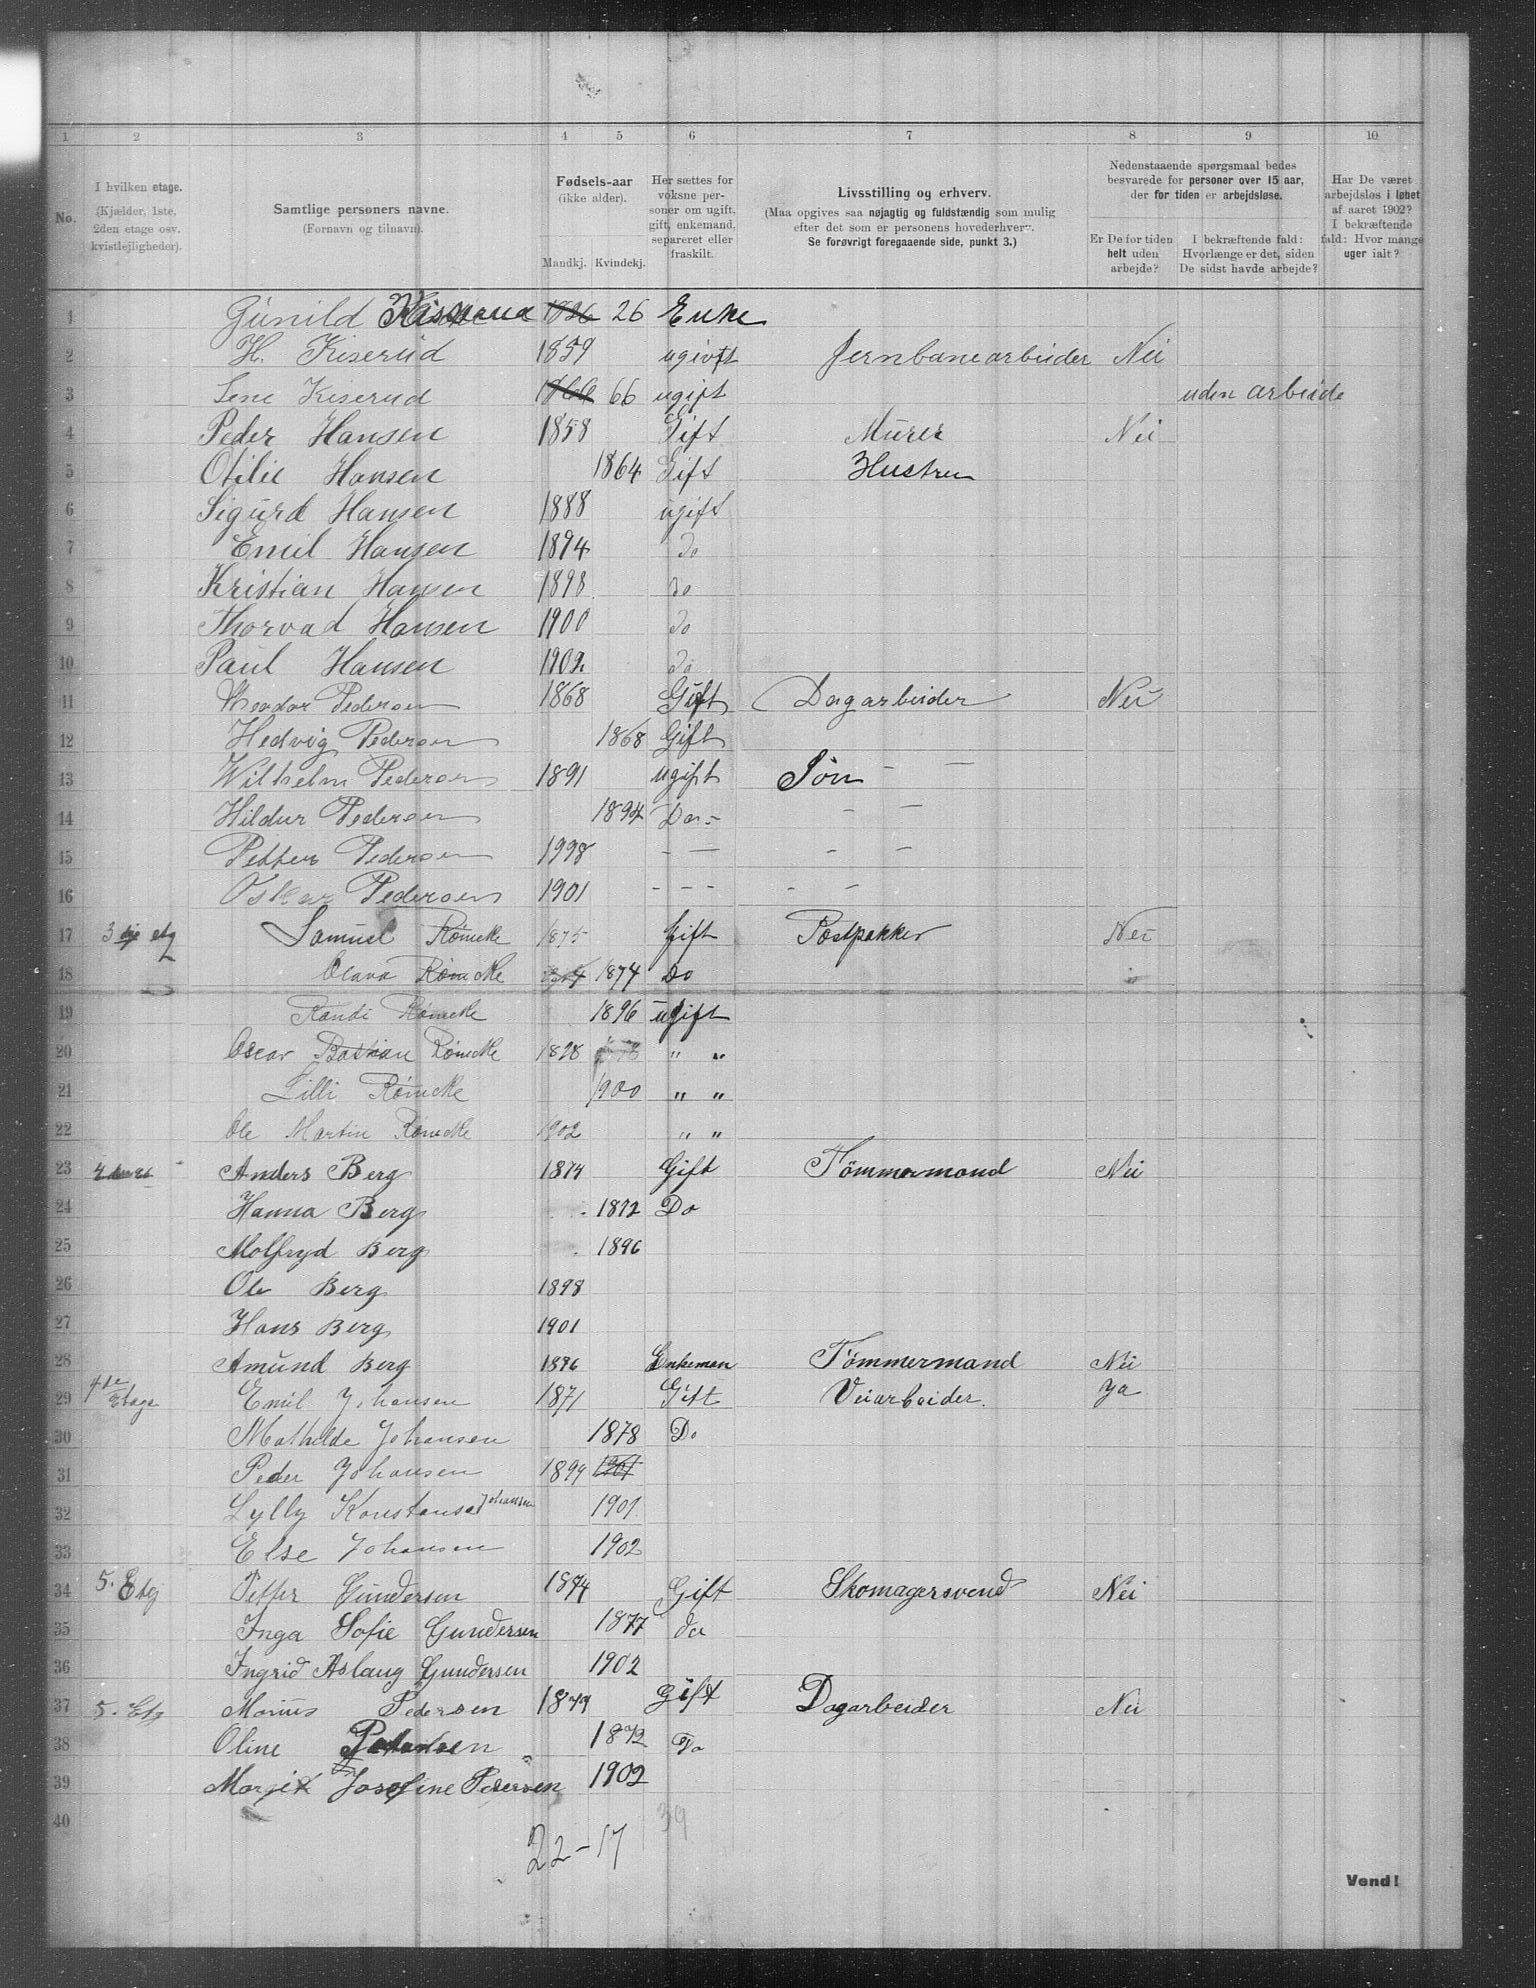 1 2 3 4 5 6 7 8 9 10
No.
I hvilken etage.
(Kjælder, 1ste, 2den etage osv. kvistlejligheder).
Samtlige personers navne.
(Fornavn og tilnavn).
Fødsels-aar
(ikke alder).
Mandkj. Kvindekj.
Her sættes for voksne personer om ugift, gift, enkemand, separeret eller fraskilt.
Livsstilling og erhverv.
(Maa opgives saa nøjagtig og fuldstændig som mulig
efter det som er personens hovederhverv.
Se forøvrigt foregaaende side, punkt 3.)
Nedenstaaende spørgsmaal bedes
besvarede for personer over 15 aar,
der for tiden er arbejdsløse.
Er De for tiden helt uden arbejde?
I bekræftende fald: Hvorlænge er det, siden De sidst havde arbejde?
Har De været arbejdsløs i løbet af aaret 1902? I bekræftende fald: Hvor mange uger ialt?
1 Gunild 1826 26 Enke
2 H. Kiserud 1859 ugivft Jernbanearbeider Nei
3 Lene Kiserud 1866 66 ugift uden arbeide
4 Peder Hansen 1858 Gift Murer Nei
5 Otilie Hansen 1864 Gift Hustru
6 Sigurd Hansen 1888 ugift
7 Emil Hansen 1894 do
8 Kristian Hansen 1898 do
9 Thorvad Hansen 1900 do
10 Paul Hansen 1902 do
11 Theodor Pedersen 1868 Gift Dagarbeider Nei
12 Hedvig Pedersen 1868 Gift
13 Wilhelm Pedersen 1891 ugift Søn - -
14 Hildur Pedersen 1894 Do - - -
15 Petter Pedersen 1998 - - - -
16 Oskar Pedersen 1901 - - - - -
17 3 die etg Samuel Rømcke 1875 Gift Postpakker Nei
18 Olava Rømcke 1874 1874 Do
19 Randi Rømcke 1896 ugift
20 Oscar Bastian Rømcke 1898 " "
21 Lilli Rømcke 1900 " "
22 Ole Martin Rømcke 1902 " "
23 Anders Berg 1874 Gift Tømmermand Nei
24 Hanna Berg 1872 Do
25 Molfryd Berg 1896
26 Ole Berg 1898
27 Hans Berg 1901
28 Amund Berg 1896 Enkeman Tømmermand Nei
29 4de Etage Emil Johansen 1871 Gift Veiarbeider. Ja
30 Mathilde Johansen 1878 Do
31 Peder Johansen 1899 1901
32 Lylly Konstanse Johansen 1901
33 Else Johansen 1902
34 5. Etg Petter Gundersen 1874 Gift Skomagersvend Nei
35 Inga Sofie Gundersen 1877 do
36 Ingrid Aslaug Gundersen 1902
37 5. Etg Marius Pedersen 1879 Gift Dagarbeider Nei
38 Oline Pedersen 1872 Do
39 Margit Josefine Pedersen 1902
40
39
22-17
Vend!